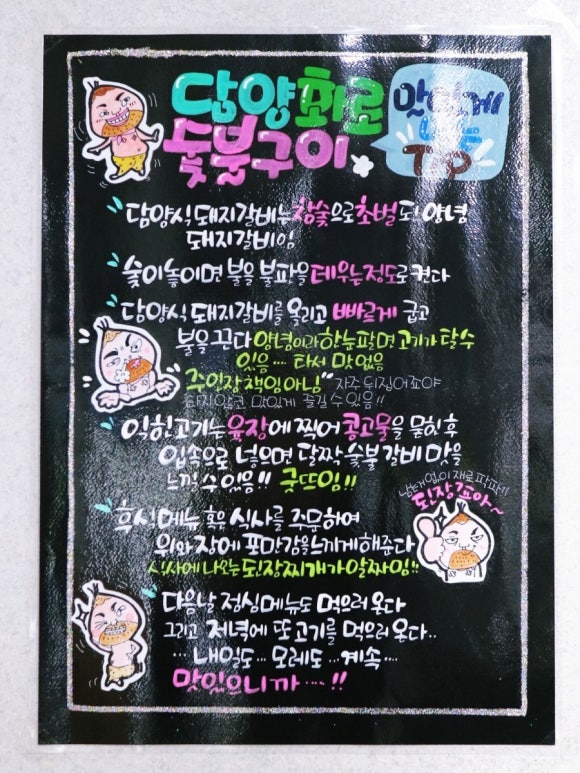 담양화로
숯불구이
맛있게
먹는
TIP
담양식 돼지갈비는 참숯으로 초벌 된 양념
돼지갈비임
숯이놓이면 불을 불판을 데우는정도로 켠다
담양식 돼지갈비를 올리고 빠르게 굽고
불을 끈다 양념이라 한눈팔면 고기가 탈수
있음... 타서 맛없음
주인장책임아님" 자주 뒤집어죠야
타지않고 맛있게 즐길 수 있음!!
익힌고기는 육장에 찍어 콩고물을 묻힌후
입속으로 넣으면 달짝 숯불갈비 맛을
느낄 수 있음!! 굳뜨임!!
후식메뉴 혹은 식사를 주문하여
위와장에 포만감을느끼게해준다
식사에 나오는 된장찌개가 알짜임!!
된장쪼아~
다음날 점심메뉴도 먹으러 온다
그리고 저녁에 또 고기를 먹으러 온다..
... 내일도... 모레도... 계속...
맛있으니까....!!